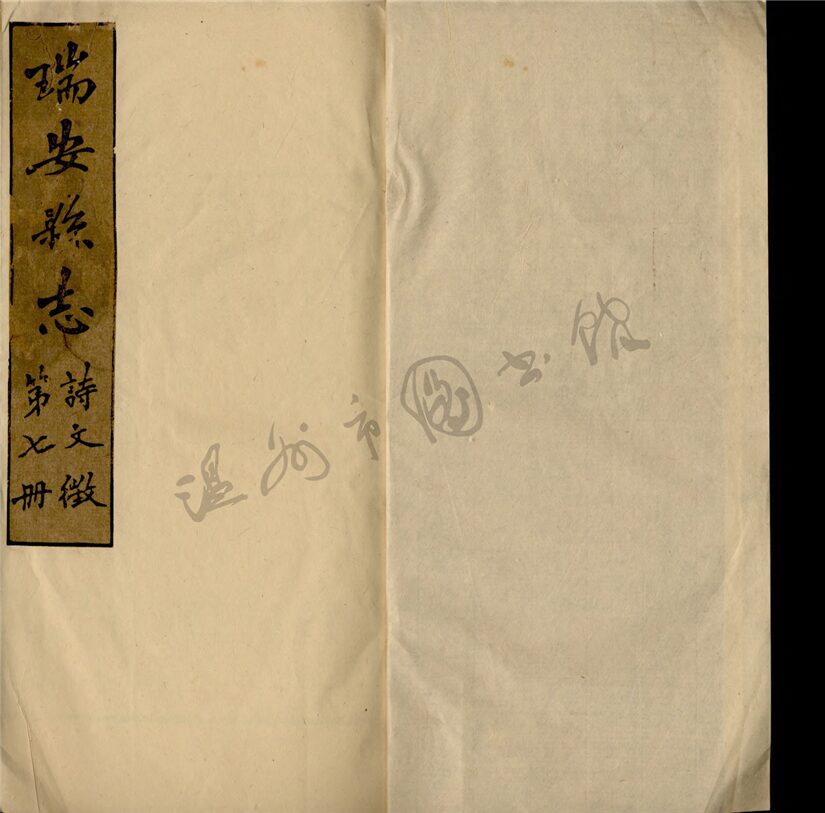 瑞安縣志
詩文徵
第七册
温州市圖书馆